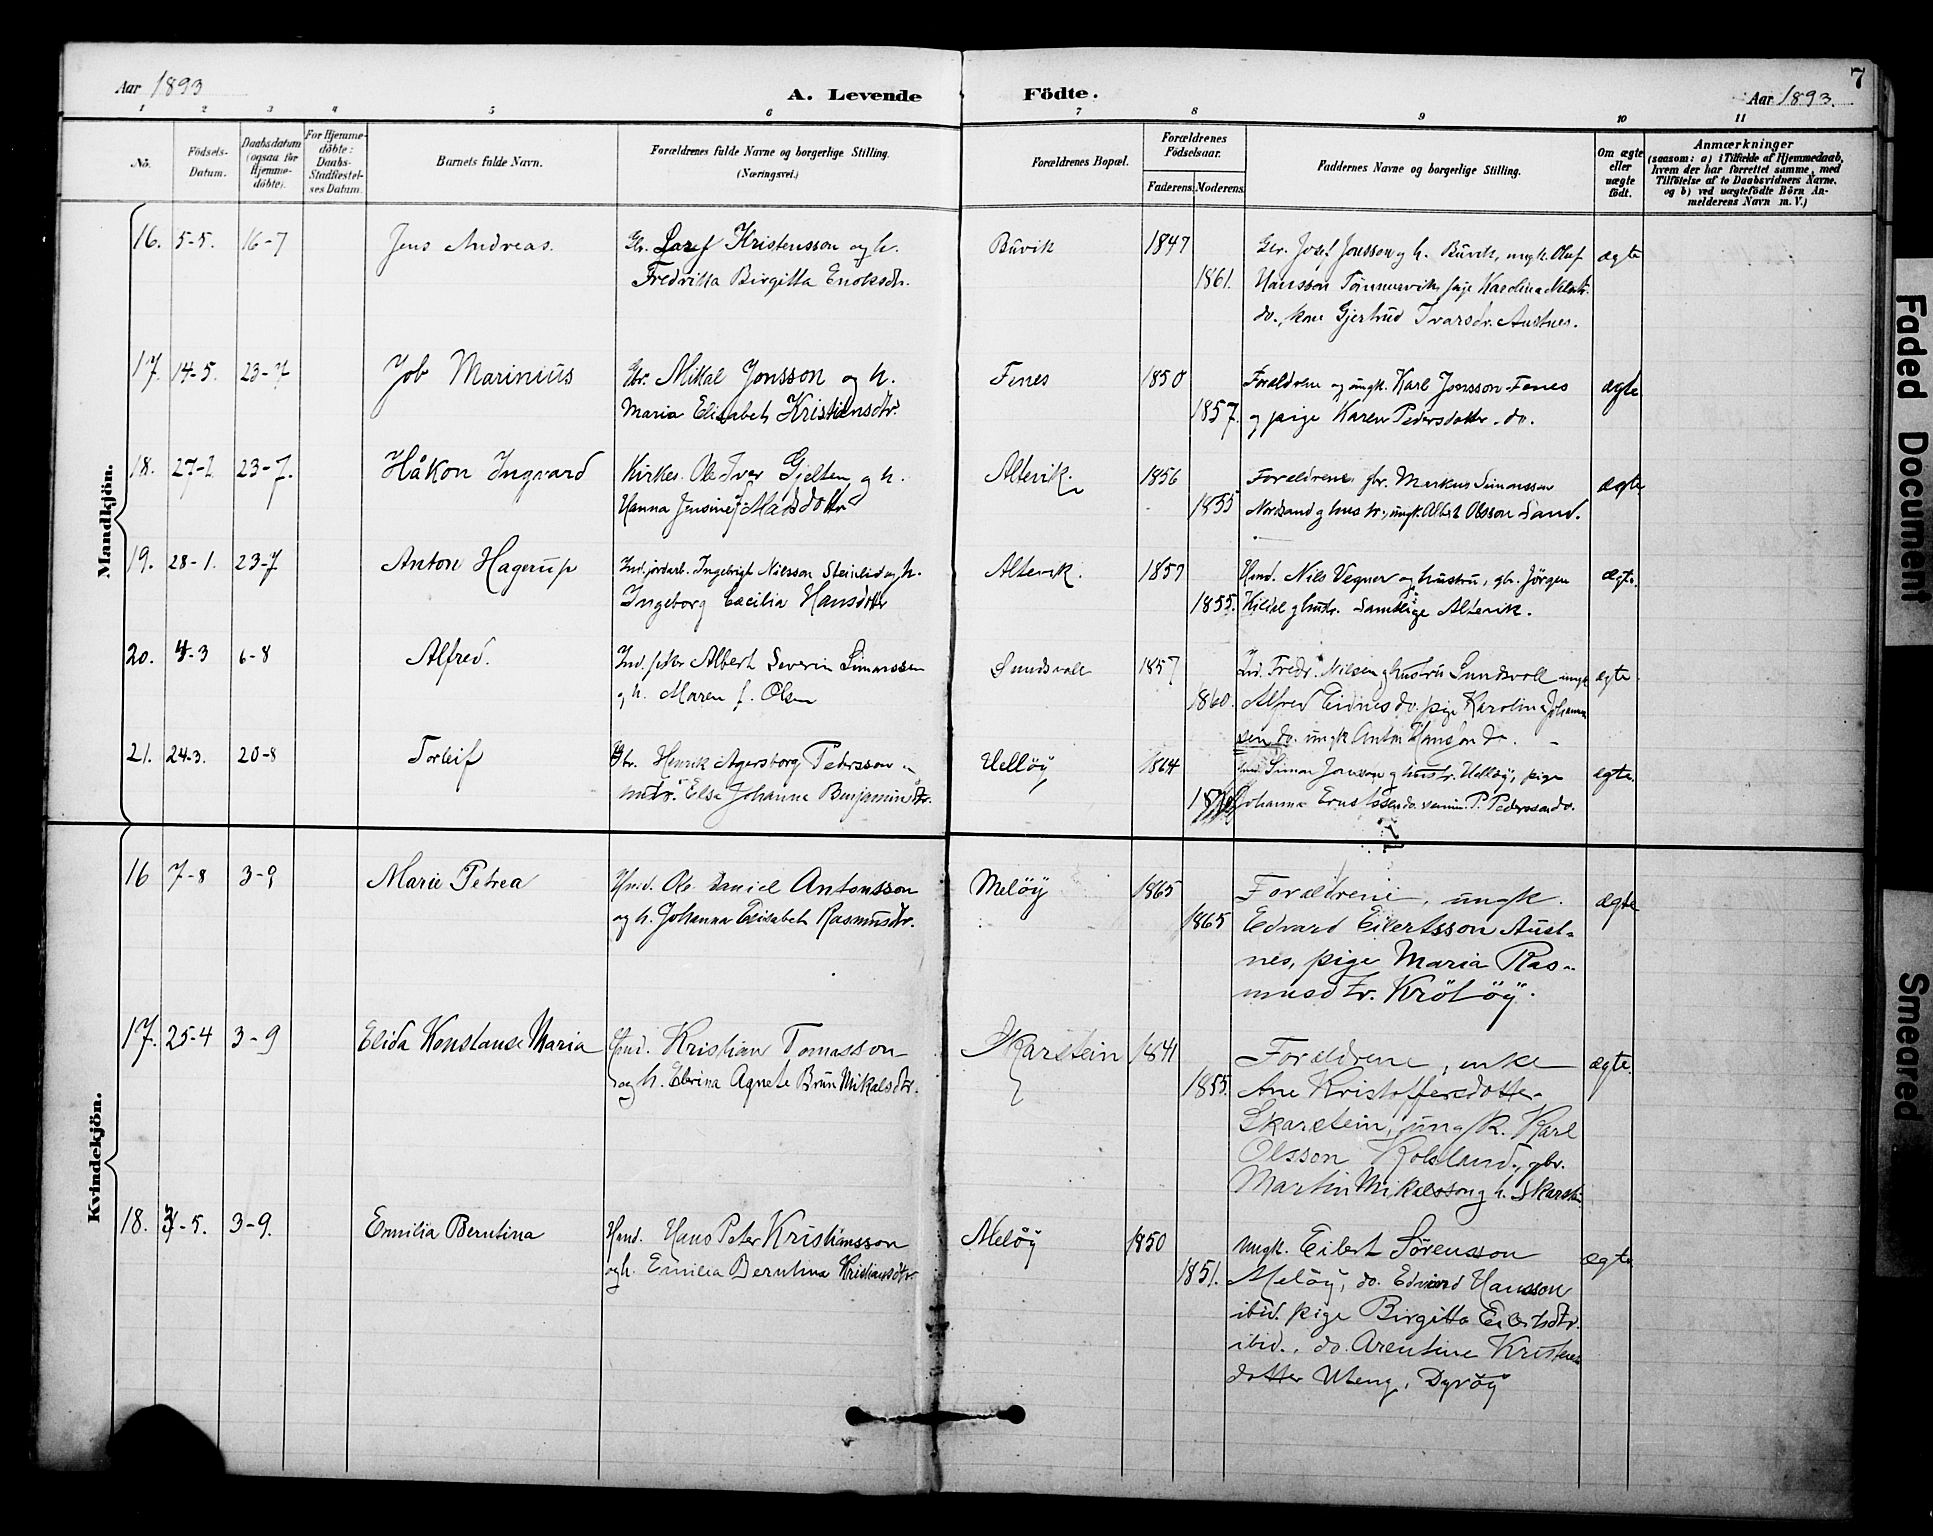 Aar 1893
A. Levende Födte.
Aar 1893.
7
1 2 3 4 5 6 7 8 9 10 11
No.
Födsels-Datum.
Daabsdatum (ogsaa for Hjemme-döbte).
For Hjemme-döbte: Daabs-Stadfæstel-ses Datum.
Barnets fulde Navn.
Forældrenes fulde Navne og borgerlige Stilling.
(Næringsvei.)
Forældrenes Bopæl.
Forældrenes Födselsaar.
Faderens. Moderens.
Faddernes Navne og borgerlige Stilling.
Om ægte eller uægte födt.
Anmærkninger
(saasom: a) i Tilfælde af Hjemmedaab, hvem der har forrettet samme, med Tilföielse af to Daabsvidners Navne, og b) ved uægtefödte Börn Anmelderens Navn m. V.)
Mandkjön.
16. 5-5. 16-7 Jens Andreas. Gbr. Kristensson og h. Buvik 1847 Gbr. Josef Jonsson og h. Buvik, ungk. Oluf ægte
Fredrikka Birgitta Enoksdtr. 1861. Hansson Tömmervik, pige Karolina
do., kone Gjertrud Ivarsdtr. Austnes.
17. 14-5. 23-7 Job Marinius Gbr. Mikal Jonsson og h. Fenes 1850 Forældrene og ungk. Karl Jonsson Fenes ægte
Maria Elisabet Kristiansdtr. 1857. og pige Karen Pedersdatter do.
18. 23-7. Håkon Ingvard Kirkes. Ole Iver Gjelsten og h. Altevik. 1856 Forældrene, gbr. Markus Simonsson ægte
Hanna Jensine Madsdottr 1855 Nordsand og hustr., ungk. Albert Olsson Sand.
19. 28-1. 23-7 Anton Hagerup Ind. jordarb. Ingebrigt Nilsson Steinlid og h. Altevik. 1857 Hmd. Nils Vegner og hustru, gbr. Jörgen ægte.
Ingeborg Cæcilia Hansdotter 1855. Kildal og hustr. Samtlige Altevik.
20. 4-3 6-8 Alfred. Ind. Albert Severin Simonssen Sundsvoll 1857 Ind. Fredr. Nilsen og hustru Sundsvoll ungk ægte.
og h. Maren f. Olsen 1860. Alfred Eidnes do. pige Karolina Johannes
sen do. ungk Anton Hanson do.
21. 24-3. 20-8 Torleif Gbr. Henrik Agersborg Pedersson Velløy 1864 Simon Jonsson og hustr. Velløy, pige ægte.
Elsa Johanna Benjaminsdtr. Johanna Ernstsen do. P. Pedersson do.
Kvindekjön.
16 7-8 3-9 Marie Petrea Hmd. Ole Daniel Antonsson Meløy 1865 Forældrene, ungk. ægte
og h. Johanna Elisabet Rasmusdtr. 1865 Edvard Eilertsson Aust-
nes, pige Maria Ras-
musdtr. Krötöy.
17. 25-4 3-9 Elida Konstanse Maria Hmd. Kristian Tomasson Skarstein 1841 Forældrene, enke ægte.
og h. Elerina Agnete Brun Mikalsdtr. 1855. Ane Kristoffersdotter
Skarstein, ungk. Karl
Olsson Kolsland, gbr.
Martin Mikalsson og h. Skarstein
18. 3-5. 3-9. Emilia Berntina Hmd. Hans Peter Kristiansson Meløy 1850 Ungk. Eilert Sörensson ægte
og h. Emilia Berntina Kristiansdtr 1851. Meløy, do. Edvard Hansson
ibid. pige Birgitta Eilertsdtr.
ibid., do. Arentine Kristens
dotter Uteng, Dyröy
Faded Document
Smeared